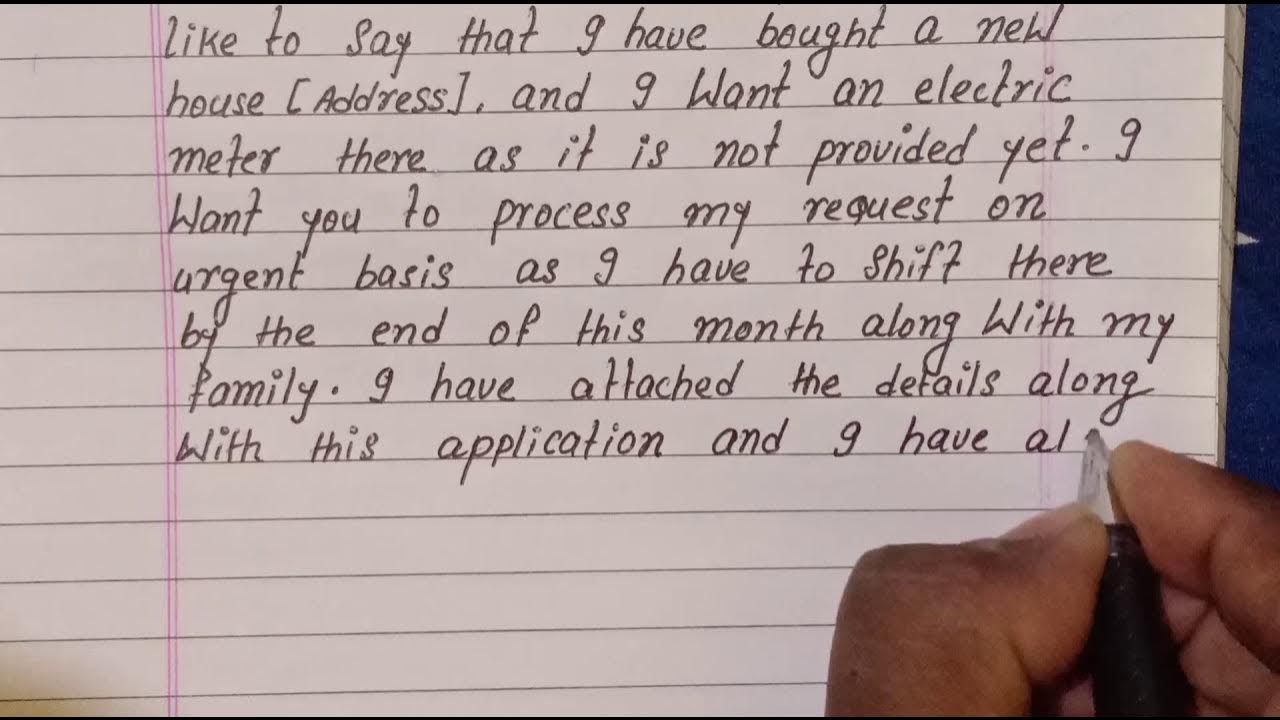 like to say that I have bought a new
house [Address], and I want an electric
meter there as it is not provided yet. I
want you to process my request on
urgent basis as I have to shift there
by the end of this month along with my
family. I have attached the details along
with this application and I have al